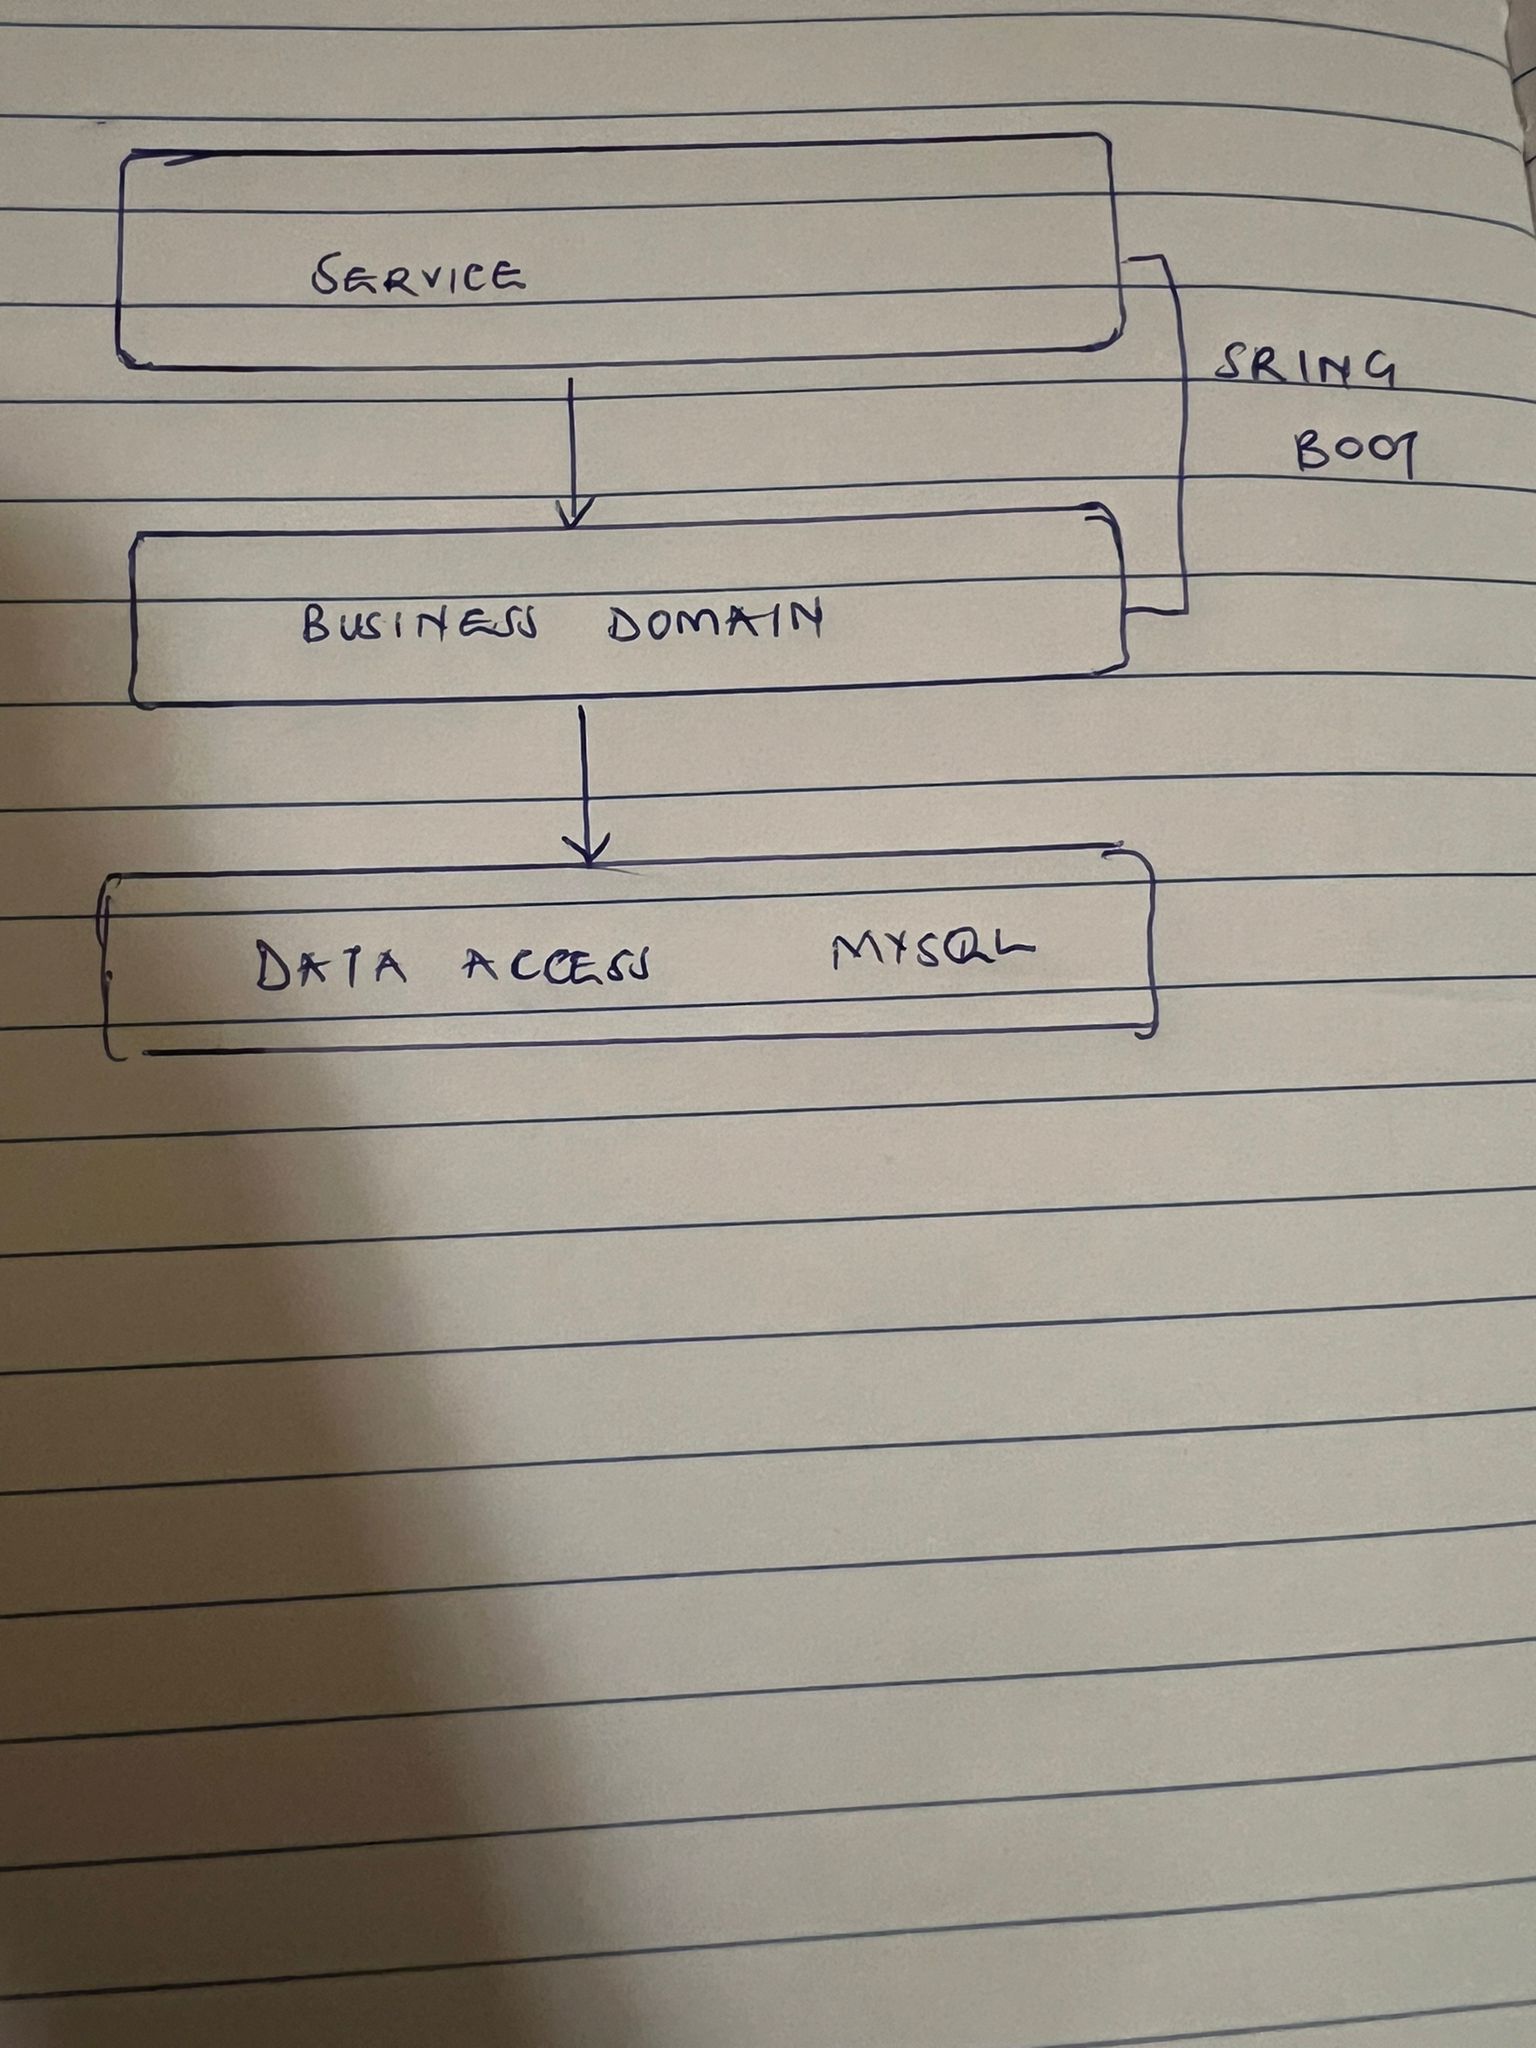 SERVICE
SRING
BOOT
BUSINESS DOMAIN
DATA ACCESS MYSQL